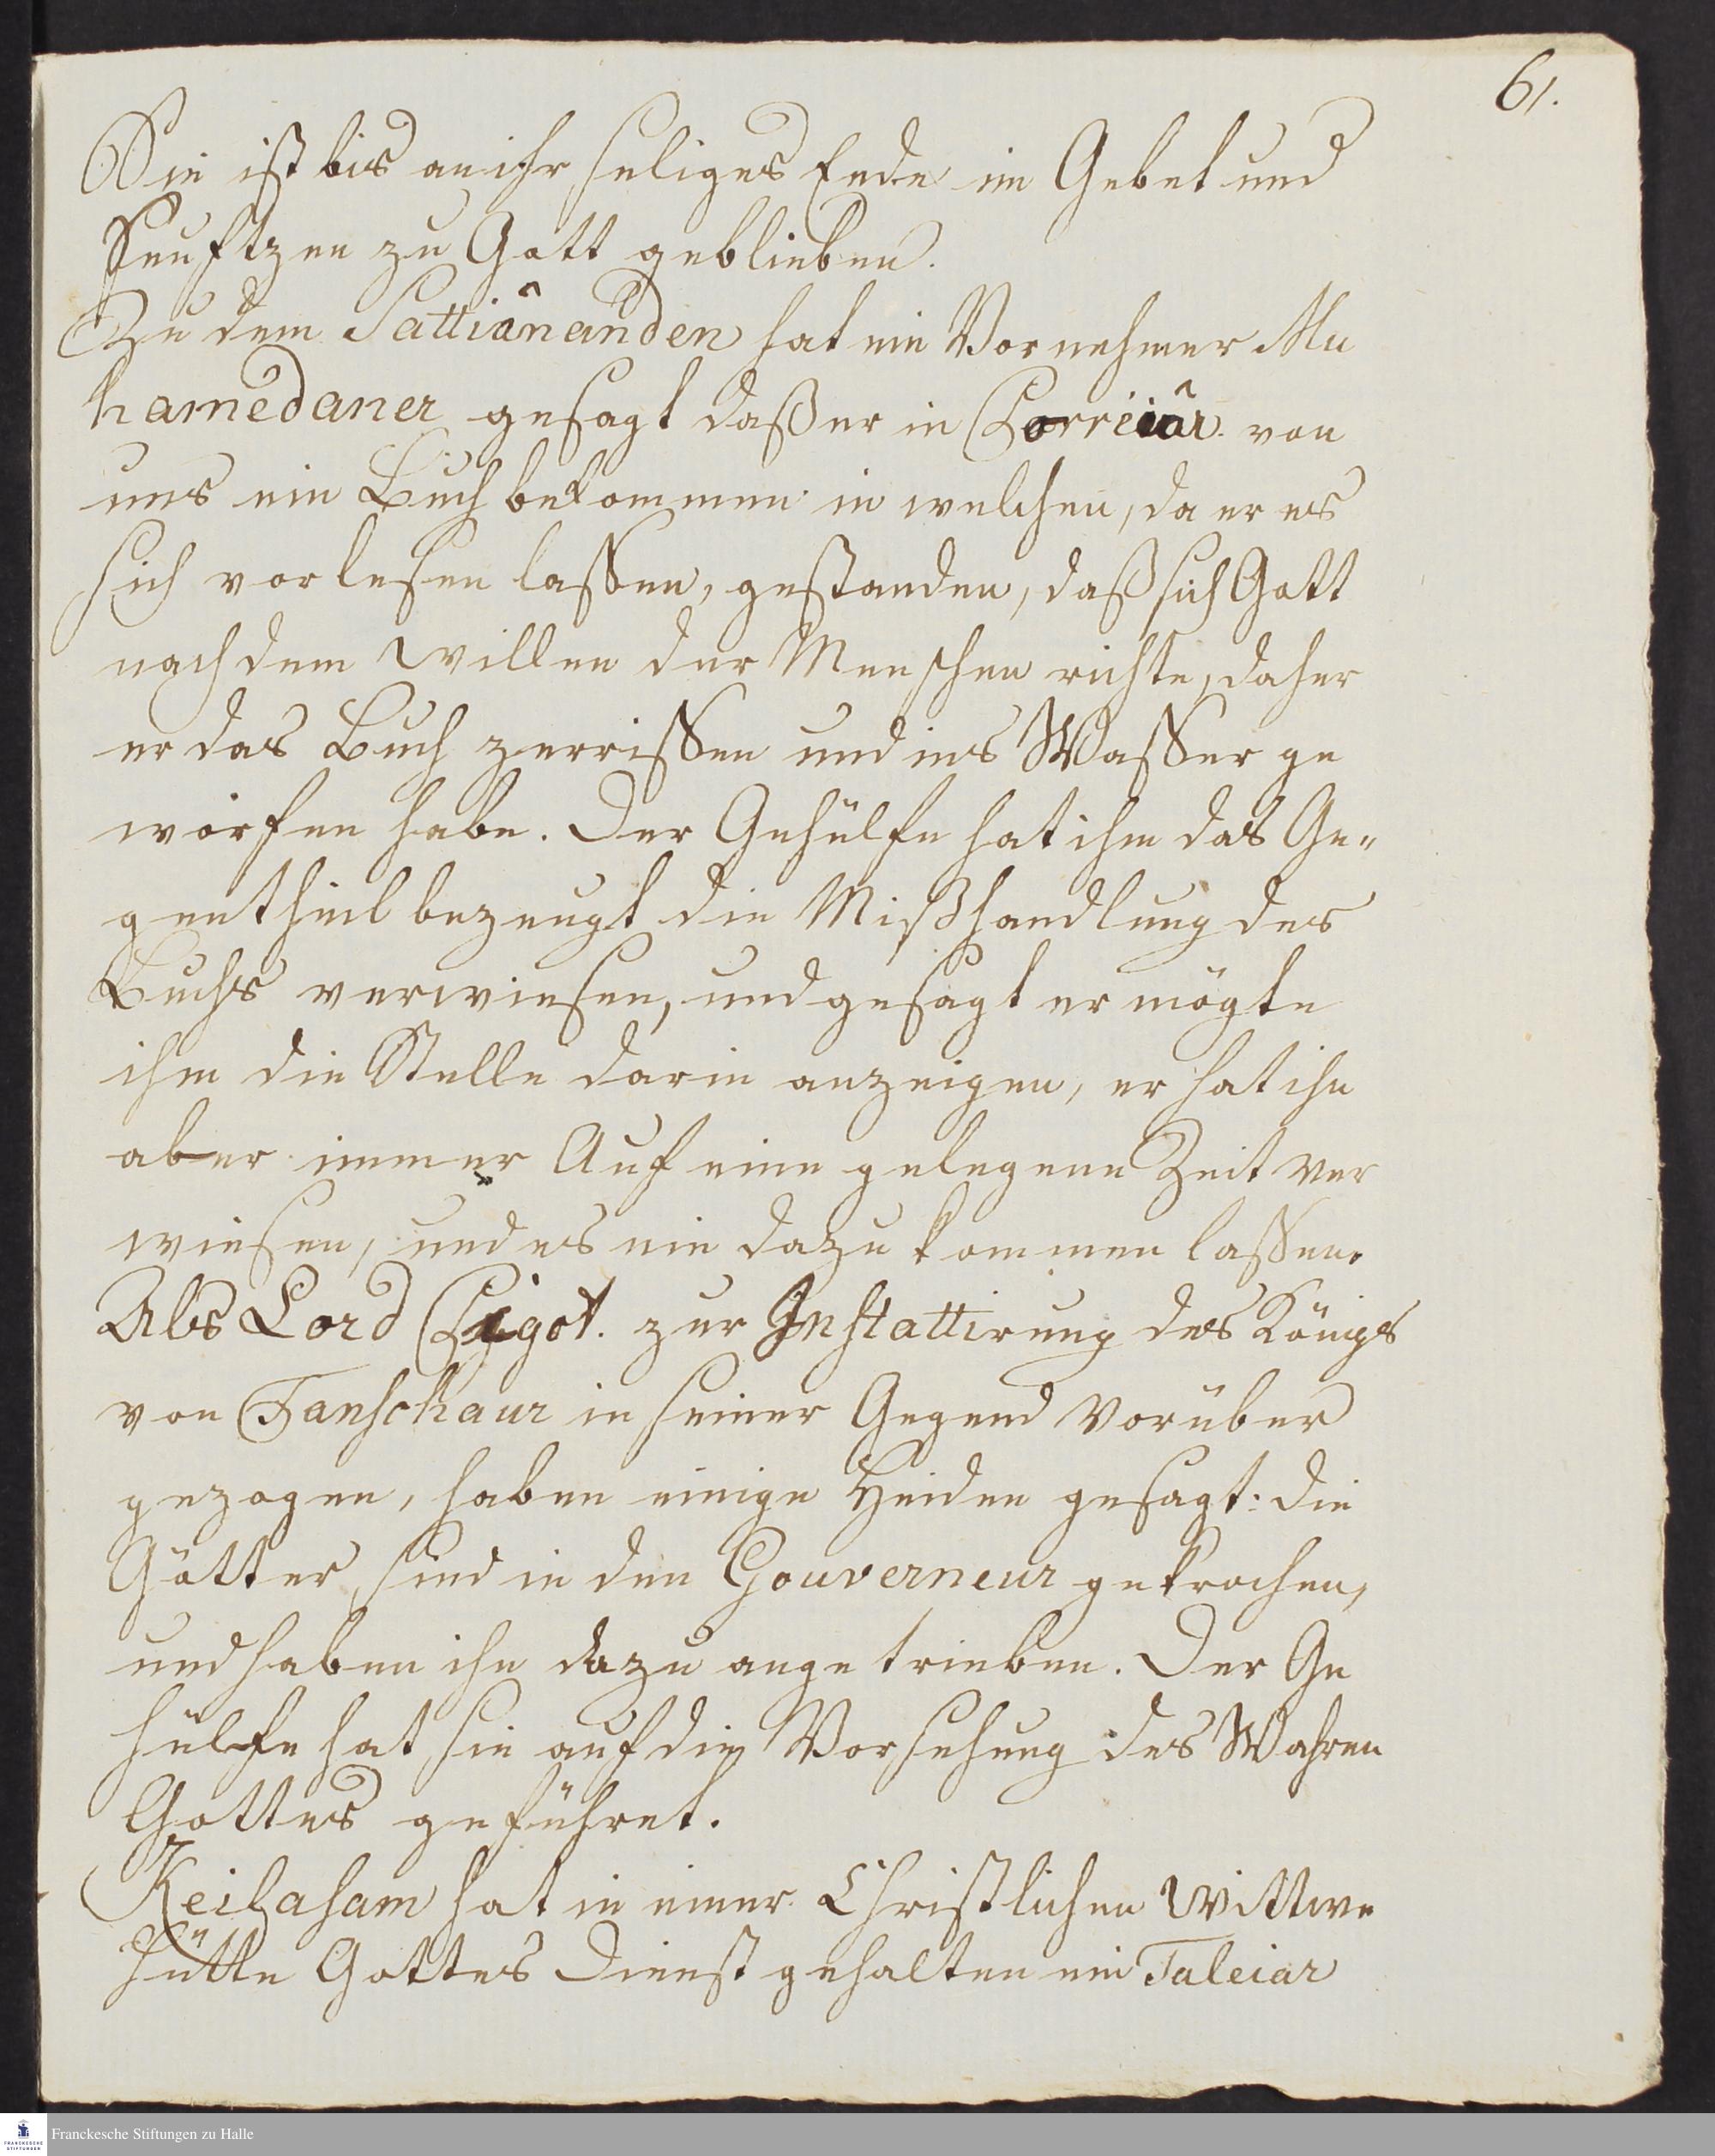 61.
Sie ist bis an ihr seliges Ende im Gebet und
Seuftzen zu Gott geblieben.
Zu dem Sattiânanden hat ein Vornehmer Mu
hamedaner gesagt daß er in Porreiâr. von
uns ein Buch bekommen in welchen, da er es
sich vorlesen lassen, gestanden, daß sich Gott
nach dem Willen der Menschen richte, daher
er das Buch zerrissen und ins Wasser ge
worfen habe. Der Gehülfe hat ihm das Ge-
gentheil bezeugt die Mißhandlung des
Buchs verwiesen, und gesagt er mögte
ihm die Stelle darin anzeigen, er hat ihn
aber immer Auf eine gelegene Zeit ver
wiesen, und es nie dazu kommen lassen.
Als Lord Pigot. zur Instattirung des Königs
von Tanschaur in seiner Gegend vorüber
gezogen, haben einige Heiden gesagt: die
Götter sind in den Gouverneur gekrochen,
und haben ihn dazu angetrieben. Der Ge
hülfe hat sie auf die Vorsehung des Wahren
Gottes geführet.
Keilasam hat in einer Christlichen Wittwe
Hütte Gottes Dienst gehalten ein Taleiar
Franckesche Stiftungen zu Halle